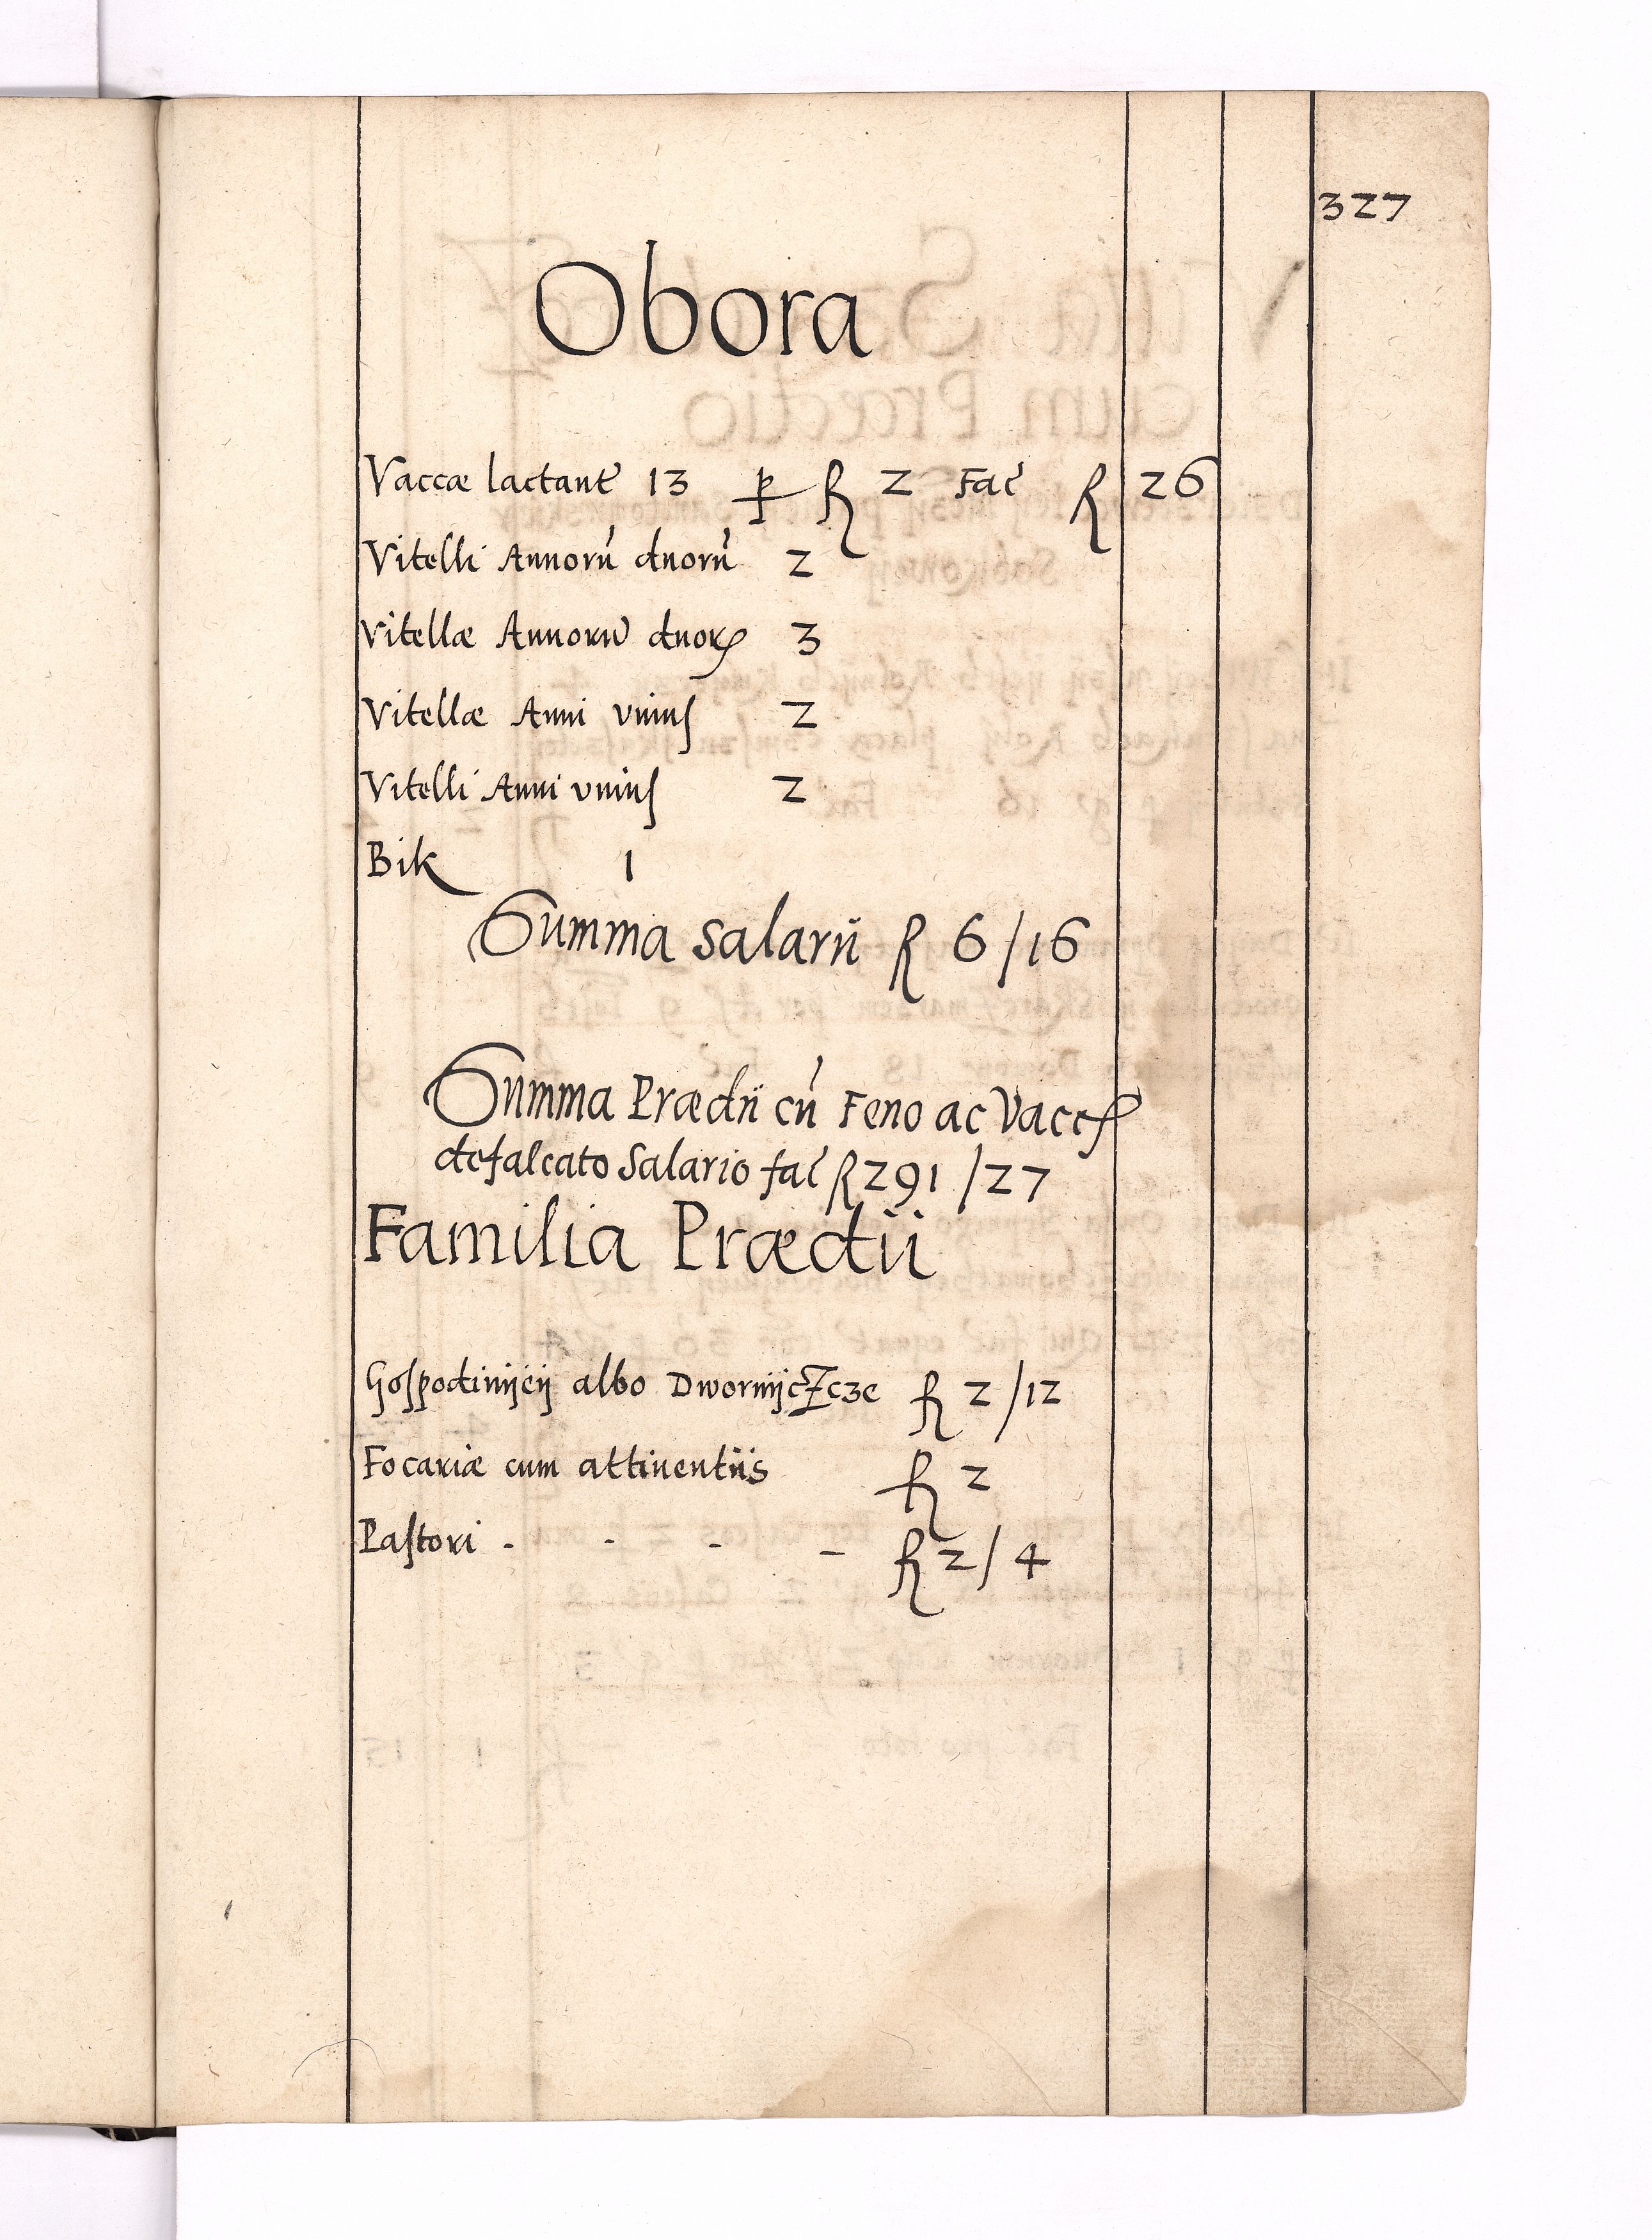 327
Obora
Vaccæ lactant 13 p fl 2 Fac fl 26
Vitelli Annorū duorū 2
Vitellæ Annorū duorꝝ 3
Vitellæ Anni vniuſ 2
Vitelli Anni vniuſ 2
Bik 1
Summa Salarii fl 6/16
Summa Prædii cū Feno ac Vacc
defalcato Salario fac fl 291/27
Familia Prædii
Goſpodinijeij albo Dwornijczcze fl 2/12
Focariæ cum attinentiis fl 2
Paſtori - - - - fl 2/4